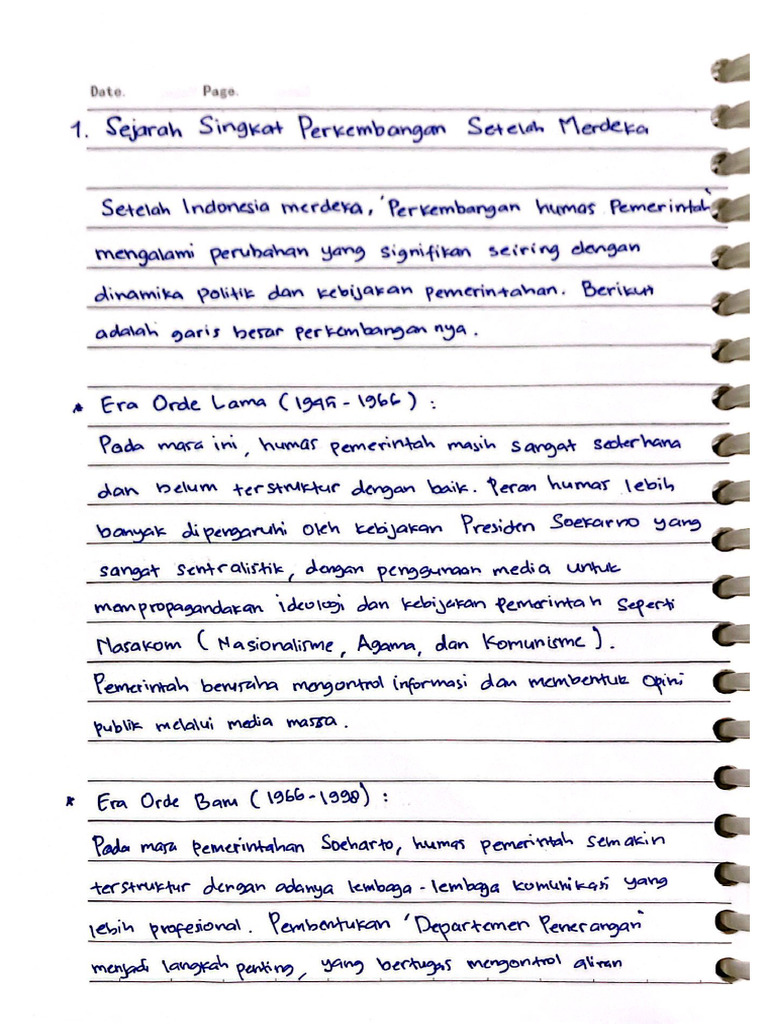 Date. Page.
1. Sejarah Singkat Perkembangan Setelah Merdeka
Setelah Indonesia merdeka, 'Perkembangan humas Pemerintah'
mengalami perubahan yang signifikan seiring dengan
dinamika politik dan kebijakan pemerintahan. Berikut
adalah garis besar perkembangan nya.
* Era Orde Lama (1945-1966) :
Pada masa ini, humas pemerintah masih sangat sederhana
dan belum terstruktur dengan baik. Peran humas lebih
banyak dipengaruhi oleh kebijakan Presiden Soekarno yang
sangat sentralistik, dengan penggunaan media untuk
mempropagandakan ideologi dan kebijakan pemerintah seperti
Nasakom (Nasionalisme, Agama, dan Komunisme).
Pemerintah berusaha mengontrol informasi dan membentuk opini
publik melalui media massa.
* Era Orde Baru (1966-1998) :
Pada masa pemerintahan Soeharto, humas pemerintah semakin
terstruktur dengan adanya lembaga-lembaga komunikasi yang
lebih profesional. Pembentukan 'Departemen Penerangan'
menjadi langkah penting, yang bertugas mengontrol aliran